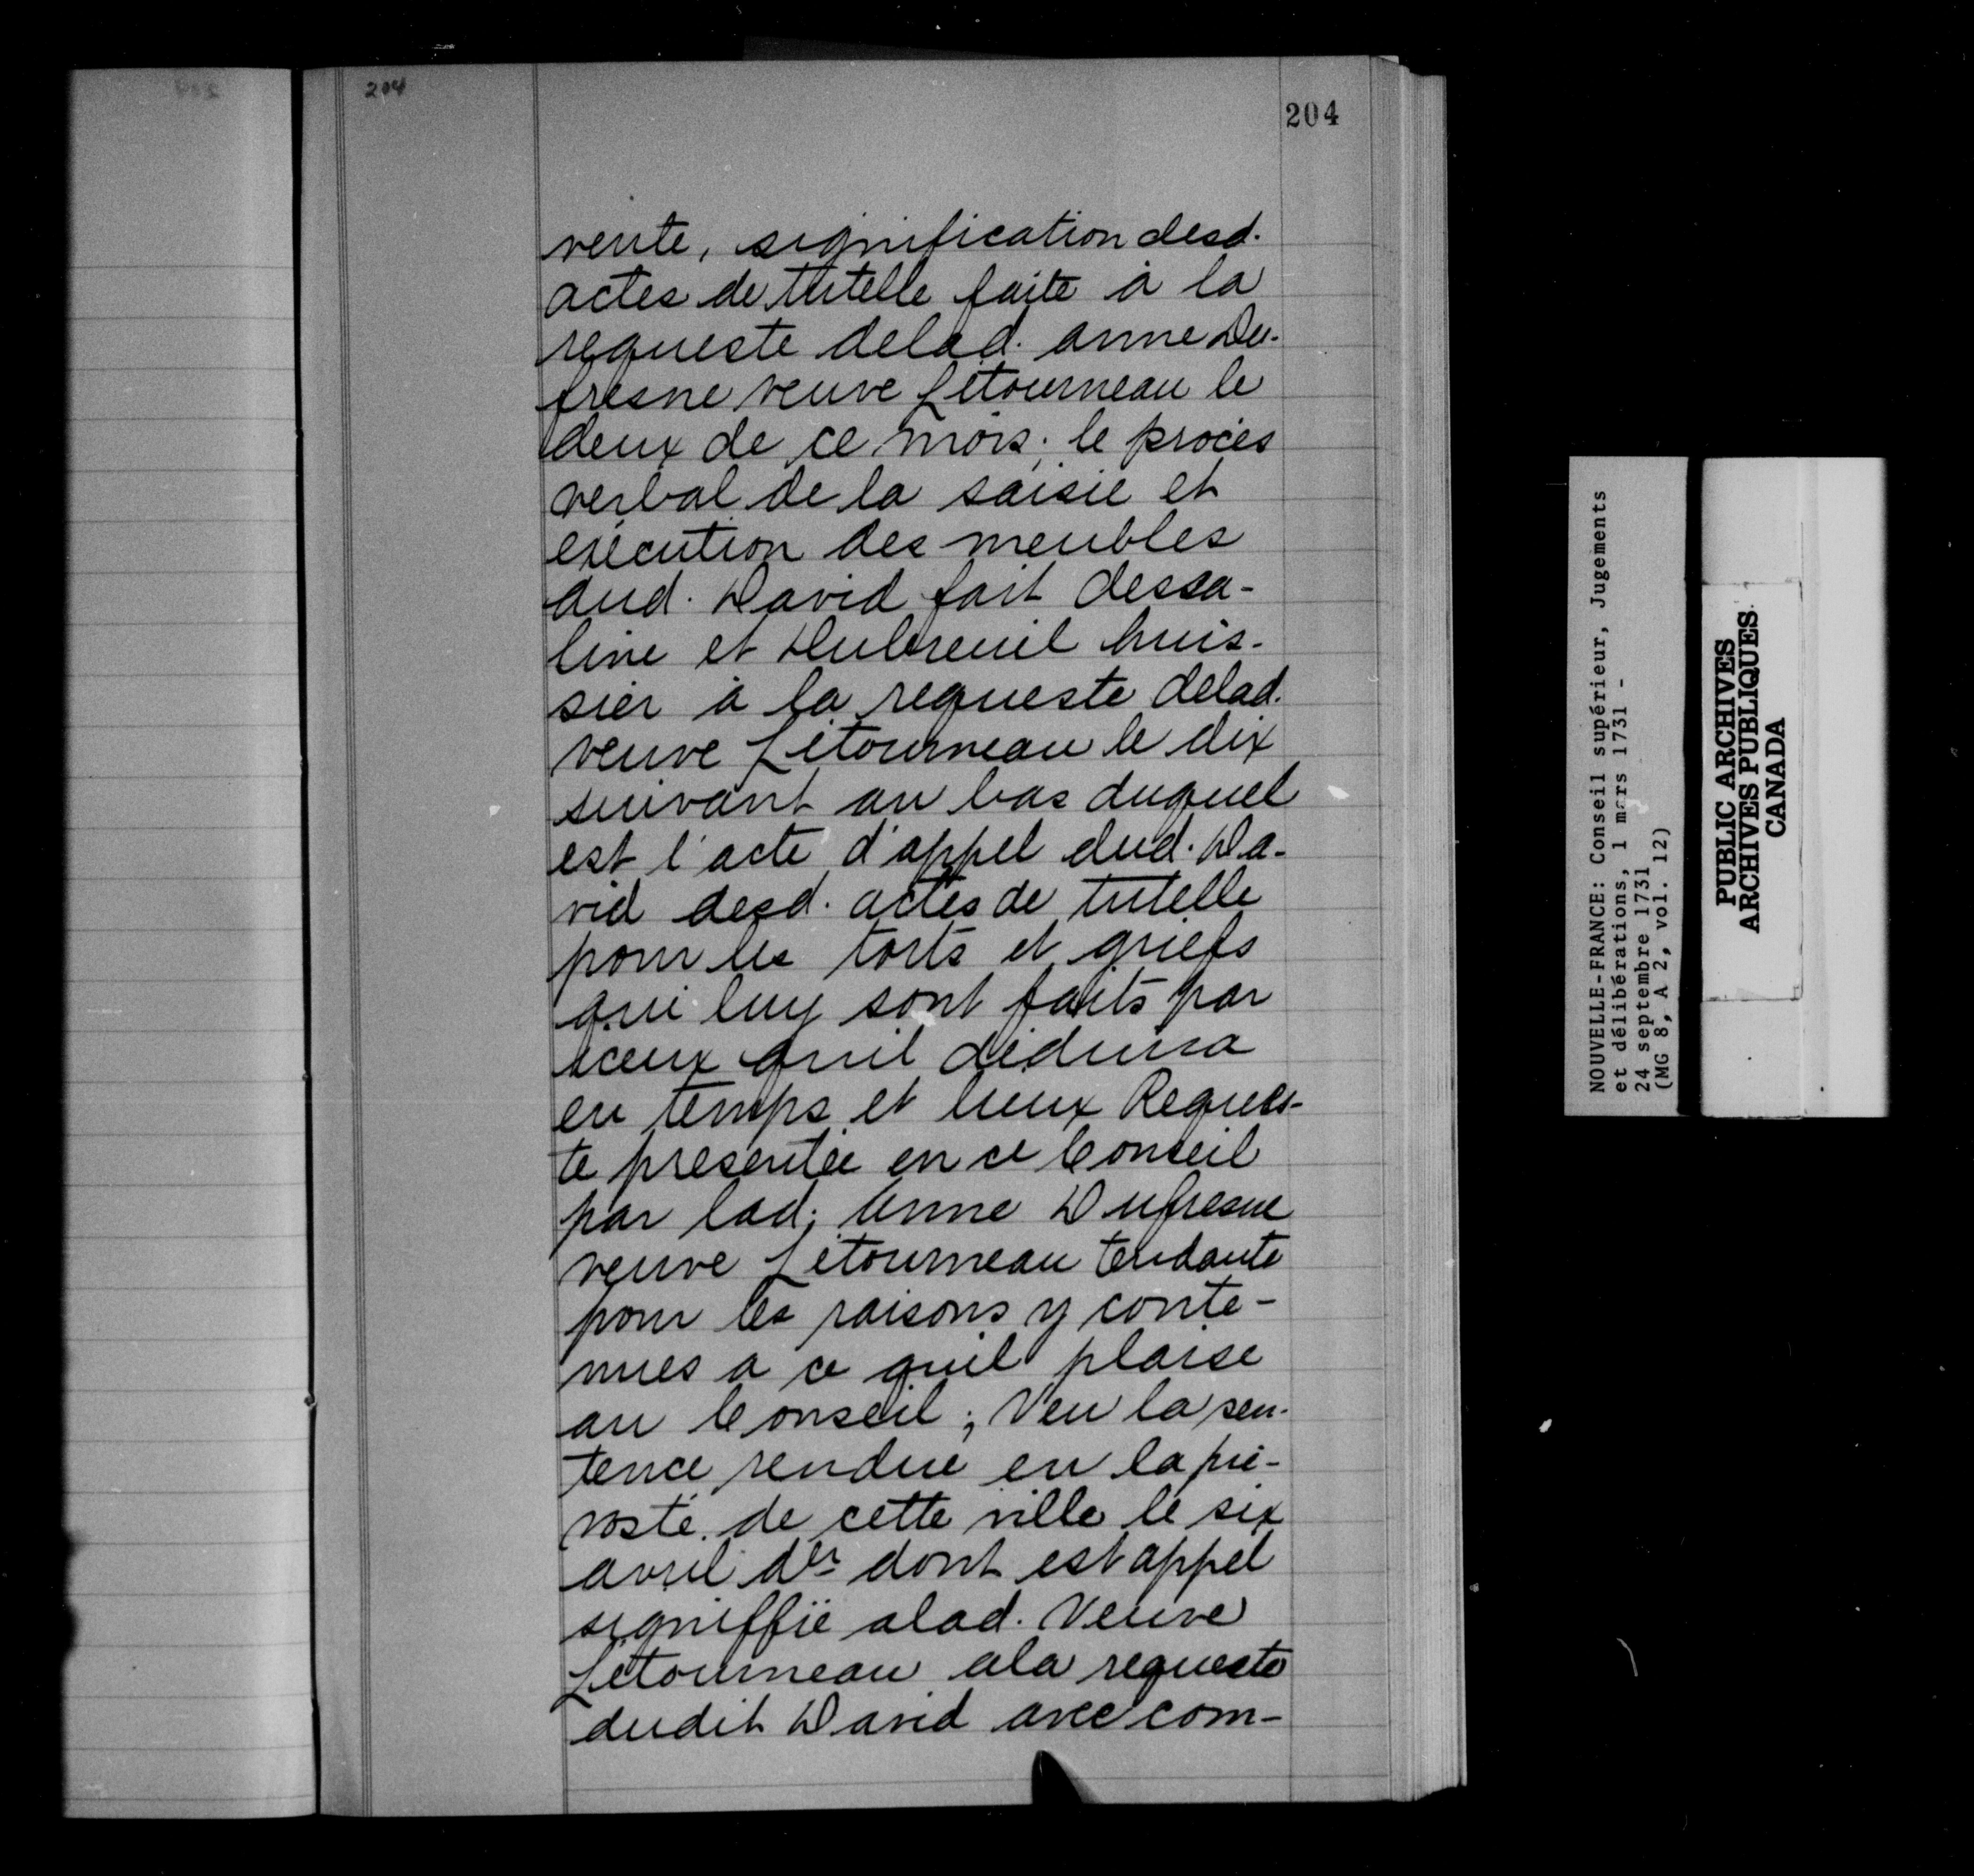 204
204
vente, signification desd.
actes de tutelle faite à la
requeste delad. anne Du-
fresne veuve Létourneau le
deux de ce mois; le procès
verbal de la saisie et
exécution des meubles
dud. David fait dessa-
line et Dubreuil huis-
sier à la requeste delad.
veuve Létourneau le dix
suivant au bas duquel
est l'acte d'appel dud. Da-
vid desd. actes de tutelle
pour les torts et griefs
qui luy sont faits par
iceux quil déduira
en temps et lieux Reques-
te presentée en ce Conseil
par lad; Anne Dufresne
veuve Létourneau tendante
pour les raisons y conte-
nues a ce quil plaise
au Conseil; Veu la sen-
tence rendue en la pré-
vosté de cette ville le six
avril der dont est appel
signiffié alad. Veuve
Létourneau ala requeste
dudit David avec com-
NOUVELLE-FRANCE: Conseil supérieur, Jugements
et délibérations, 1 mars 1731 -
24 septembre 1731
(MG 8, A 2, vol. 12)
PUBLIC ARCHIVES
ARCHIVES PUBLIQUES
CANADA